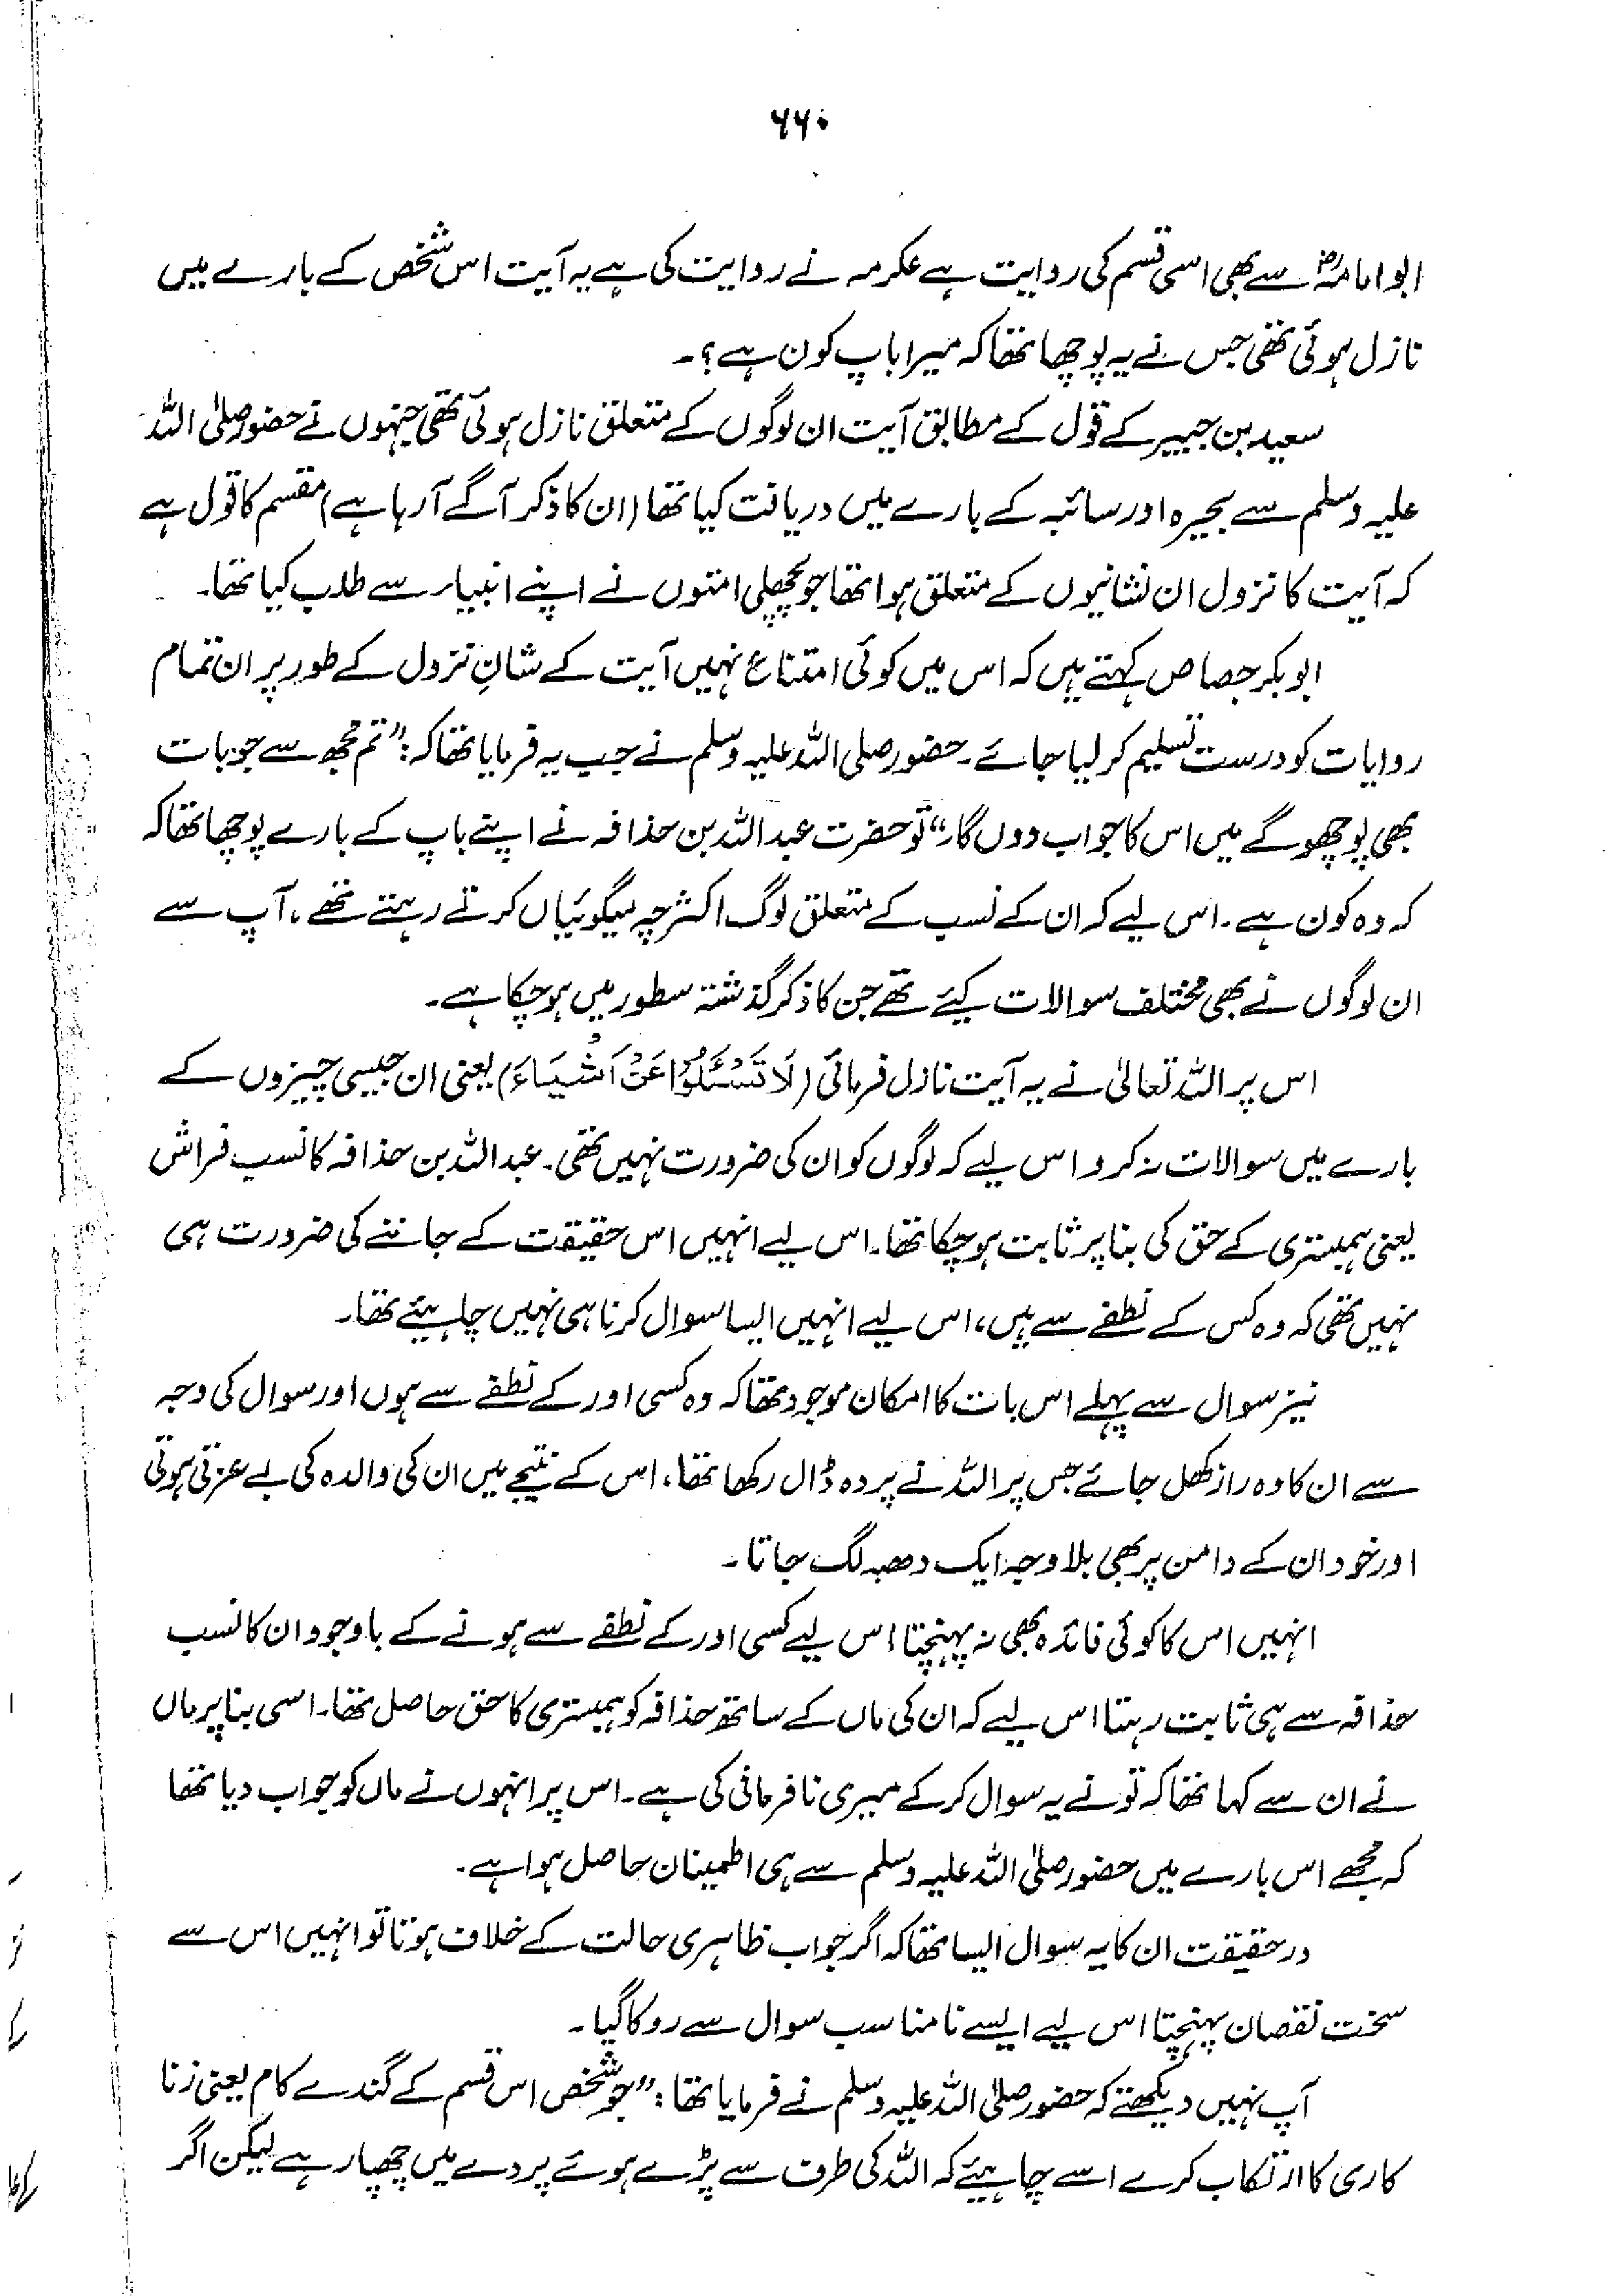 ۶۶۰
ابوامامہؓ سے بھی اسی قسم کی روایت ہے عکرمہ نے روایت کی ہے یہ آیت اس شخص کے بارے میں
نازل ہوئی تھی جس نے یہ پوچھا تھا کہ میرا باپ کون ہے؟۔
سعید بن جبیر کے قول کے مطابق آیت ان لوگوں کے متعلق نازل ہوئی تھی جنہوں نے حضور صلی اللہ
علیہ وسلم سے بحیرہ اور سائبہ کے بارے میں دریافت کیا تھا (ان کا ذکر آگے آرہا ہے) مقسم کا قول ہے
کہ آیت کا نزول ان نشانیوں کے متعلق ہوا تھا جو پچھلی امتوں نے اپنے انبیاء سے طلب کیا تھا۔
ابوبکر جصاص کہتے ہیں کہ اس میں کوئی امتناع نہیں آیت کے شانِ نزول کے طور پر ان تمام
روایات کو درست تسلیم کر لیا جائے۔ حضور صلی اللہ علیہ وسلم نے جب یہ فرمایا تھا کہ: "تم مجھ سے جو بات
بھی پوچھو گے میں اس کا جواب دوں گا،" تو حضرت عبداللہ بن حذافہ نے اپنے باپ کے بارے پوچھا تھا کہ
کہ وہ کون ہے۔ اس لیے کہ ان کے نسب کے متعلق لوگ اکثر چہ میگوئیاں کرتے رہتے تھے، آپ سے
ان لوگوں نے بھی مختلف سوالات کیئے تھے جن کا ذکر گذشتہ سطور میں ہوچکا ہے۔
اس پر اللہ تعالیٰ نے یہ آیت نازل فرمائی (لَا تَسْئَلُوْا عَنْ اَشْیَاءَ) یعنی ان جیسی چیزوں کے
بارے میں سوالات نہ کرو اس لیے کہ لوگوں کو ان کی ضرورت نہیں تھی۔ عبداللہ بن حذافہ کا نسب فراش
یعنی ہمبستری کے حق کی بنا پر ثابت ہوچکا تھا۔ اس لیے انہیں اس حقیقت کے جاننے کی ضرورت ہی
نہیں تھی کہ وہ کس کے نطفے سے ہیں، اس لیے انہیں ایسا سوال کرنا ہی نہیں چاہیئے تھا۔
نیز سوال سے پہلے اس بات کا امکان موجود تھا کہ وہ کسی اور کے نطفے سے ہوں اور سوال کی وجہ
سے ان کا وہ راز کھل جائے جس پر اللہ نے پردہ ڈال رکھا تھا، اس کے نتیجے میں ان کی والدہ کی بے عزتی ہوتی
اور خود ان کے دامن پر بھی بلاوجہ ایک دھبہ لگ جاتا۔
انہیں اس کا کوئی فائدہ بھی نہ پہنچتا اس لیے کسی اور کے نطفے سے ہونے کے باوجود ان کا نسب
حذافہ سے ہی ثابت رہتا اس لیے کہ ان کی ماں کے ساتھ حذافہ کو ہمبستری کا حق حاصل تھا۔ اسی بنا پر ماں
نے ان سے کہا تھا کہ تونے یہ سوال کرکے میری نافرمانی کی ہے۔ اس پر انہوں نے ماں کو جواب دیا تھا
کہ مجھے اس بارے میں حضور صلی اللہ علیہ وسلم سے ہی اطمینان حاصل ہوا ہے۔
درحقیقت ان کا یہ سوال ایسا تھا کہ اگر جواب ظاہری حالت کے خلاف ہوتا تو انہیں اس سے
سخت نقصان پہنچتا اس لیے ایسے نامناسب سوال سے روکا گیا۔
آپ نہیں دیکھتے کہ حضور صلی اللہ علیہ وسلم نے فرمایا تھا: "جو شخص اس قسم کے گندے کام یعنی زنا
کاری کا ارتکاب کرے اسے چاہیئے کہ اللہ کی طرف سے پڑے ہوئے پردے میں چھپا رہے لیکن اگر